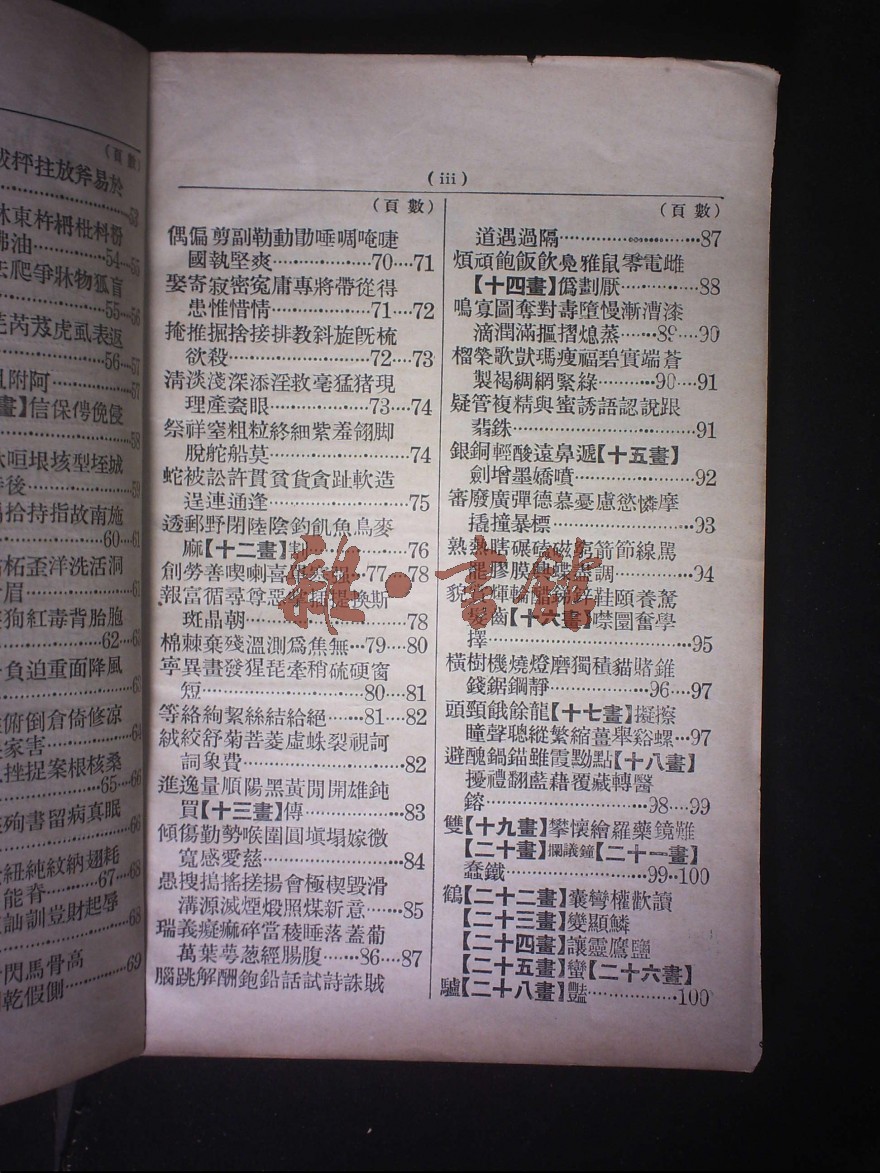 (頁數)
拔秤拄放斧易於
53
林東杵枬枇枓粉
沸油……54…55
爬爭牀物狐盲
55…56
芮芨虎虱表返
56…57
附阿……57
畫】信保俜俛侵
58
咺垠垓型垤城
後……59
拾持指故南施
60…61
柘歪洋洗活洞
眉……61
狗紅毒背胎胞
62…63
負迫重面降風
63
俯倒倉倚修凉
家害……64
挫捉案根核桑
65…66
殉書留病真眠
66
紐純紋納翅耗
能脊……67…68
訕訓豈財起辱
68
閃馬骨高
乾假側……69
(iii)
(頁數)
偶偏剪副勒動勖唾啁唵啑
國執堅爽……70…71
娶寄寂密寃庸專將帶從得
患惟惜情……71…72
掩推掘捨接排教斜旋旣梳
欲殺……72…73
淸淡淺深添淫救毫猛猪現
理產瓷眼……73…74
祭祥窒粗粒終細紫羞翎脚
脫舵船莫……74
蛇被訟許貫貧貨貪趾軟造
逞連通逢……75
透郵野閉陸陰釣飢魚鳥麥
麻【十二畫】割……76
創勞善喫喇喜
77…78
報富循尋尊惡
插提換斯
斑晶朝……78
棉棘棄殘溫測爲焦無…79…80
寧異畫發猩琵牽稍硫硬窗
短……80…81
等絡絢絮絲結給絕……81…82
絨絞舒菊菩菱虛蛛裂視訶
詞象費……82
進逸量順陽黑黃閒開雄鈍
買【十三畫】傳……83
傾傷勤勢喉圍圓塡塌嫁微
寬感愛慈……84
愚搜搗搖搓揚會極楔毀滑
溝源滅煙煅照煤新意……85
瑞義癡痲碎當稜睡落蓋葡
萬葉萼葱經腸腹……86…87
腦跳解酬鉋鉛話試詩誅賊
(頁數)
道遇過隔……87
煩頑飽飯飲鳧雅鼠零電雌
【十四畫】僞劃厭……88
鳴寡圖奪對壽墮慢漸漕漆
滴潤滿摳摺熄蒸……89…90
榴榮歌獃瑪瘦福碧實端蒼
製褐綢網緊綠……90…91
疑管複精與蜜誘語認說跟
翡銖……91
銀銅輕酸遠鼻遞【十五畫】
劍增墨嬌噴……92
審廢廣彈德慕憂慮慾憐摩
撬撞暴標……93
熟熱瞎碾磕磁
箭節線罵
罷膠膜
調……94
鞋頤養駕
齒【十六畫】噤圜奮學
擇……95
橫樹機燒燈磨獨積貓賭錐
錢鋸鋼靜……96…97
頭頸餓餘龍【十七畫】擬擦
瞳聲聰縱繁縮薑舉谿螺…97
避醜鍋錨雖霞黝點【十八畫】
擾禮翻藍藉覆藏轉醫
鎔……98…99
雙【十九畫】攀懷繪羅藥鏡難
【二十畫】攔議鐘【二十一畫】
蠢鐵……99…100
鶴【二十二畫】囊彎權歡讀
【二十三畫】變顯鱗
【二十四畫】讓靈鷹鹽
【二十五畫】蠻【二十六畫】
驢【二十八畫】豔……100
雜·书馆